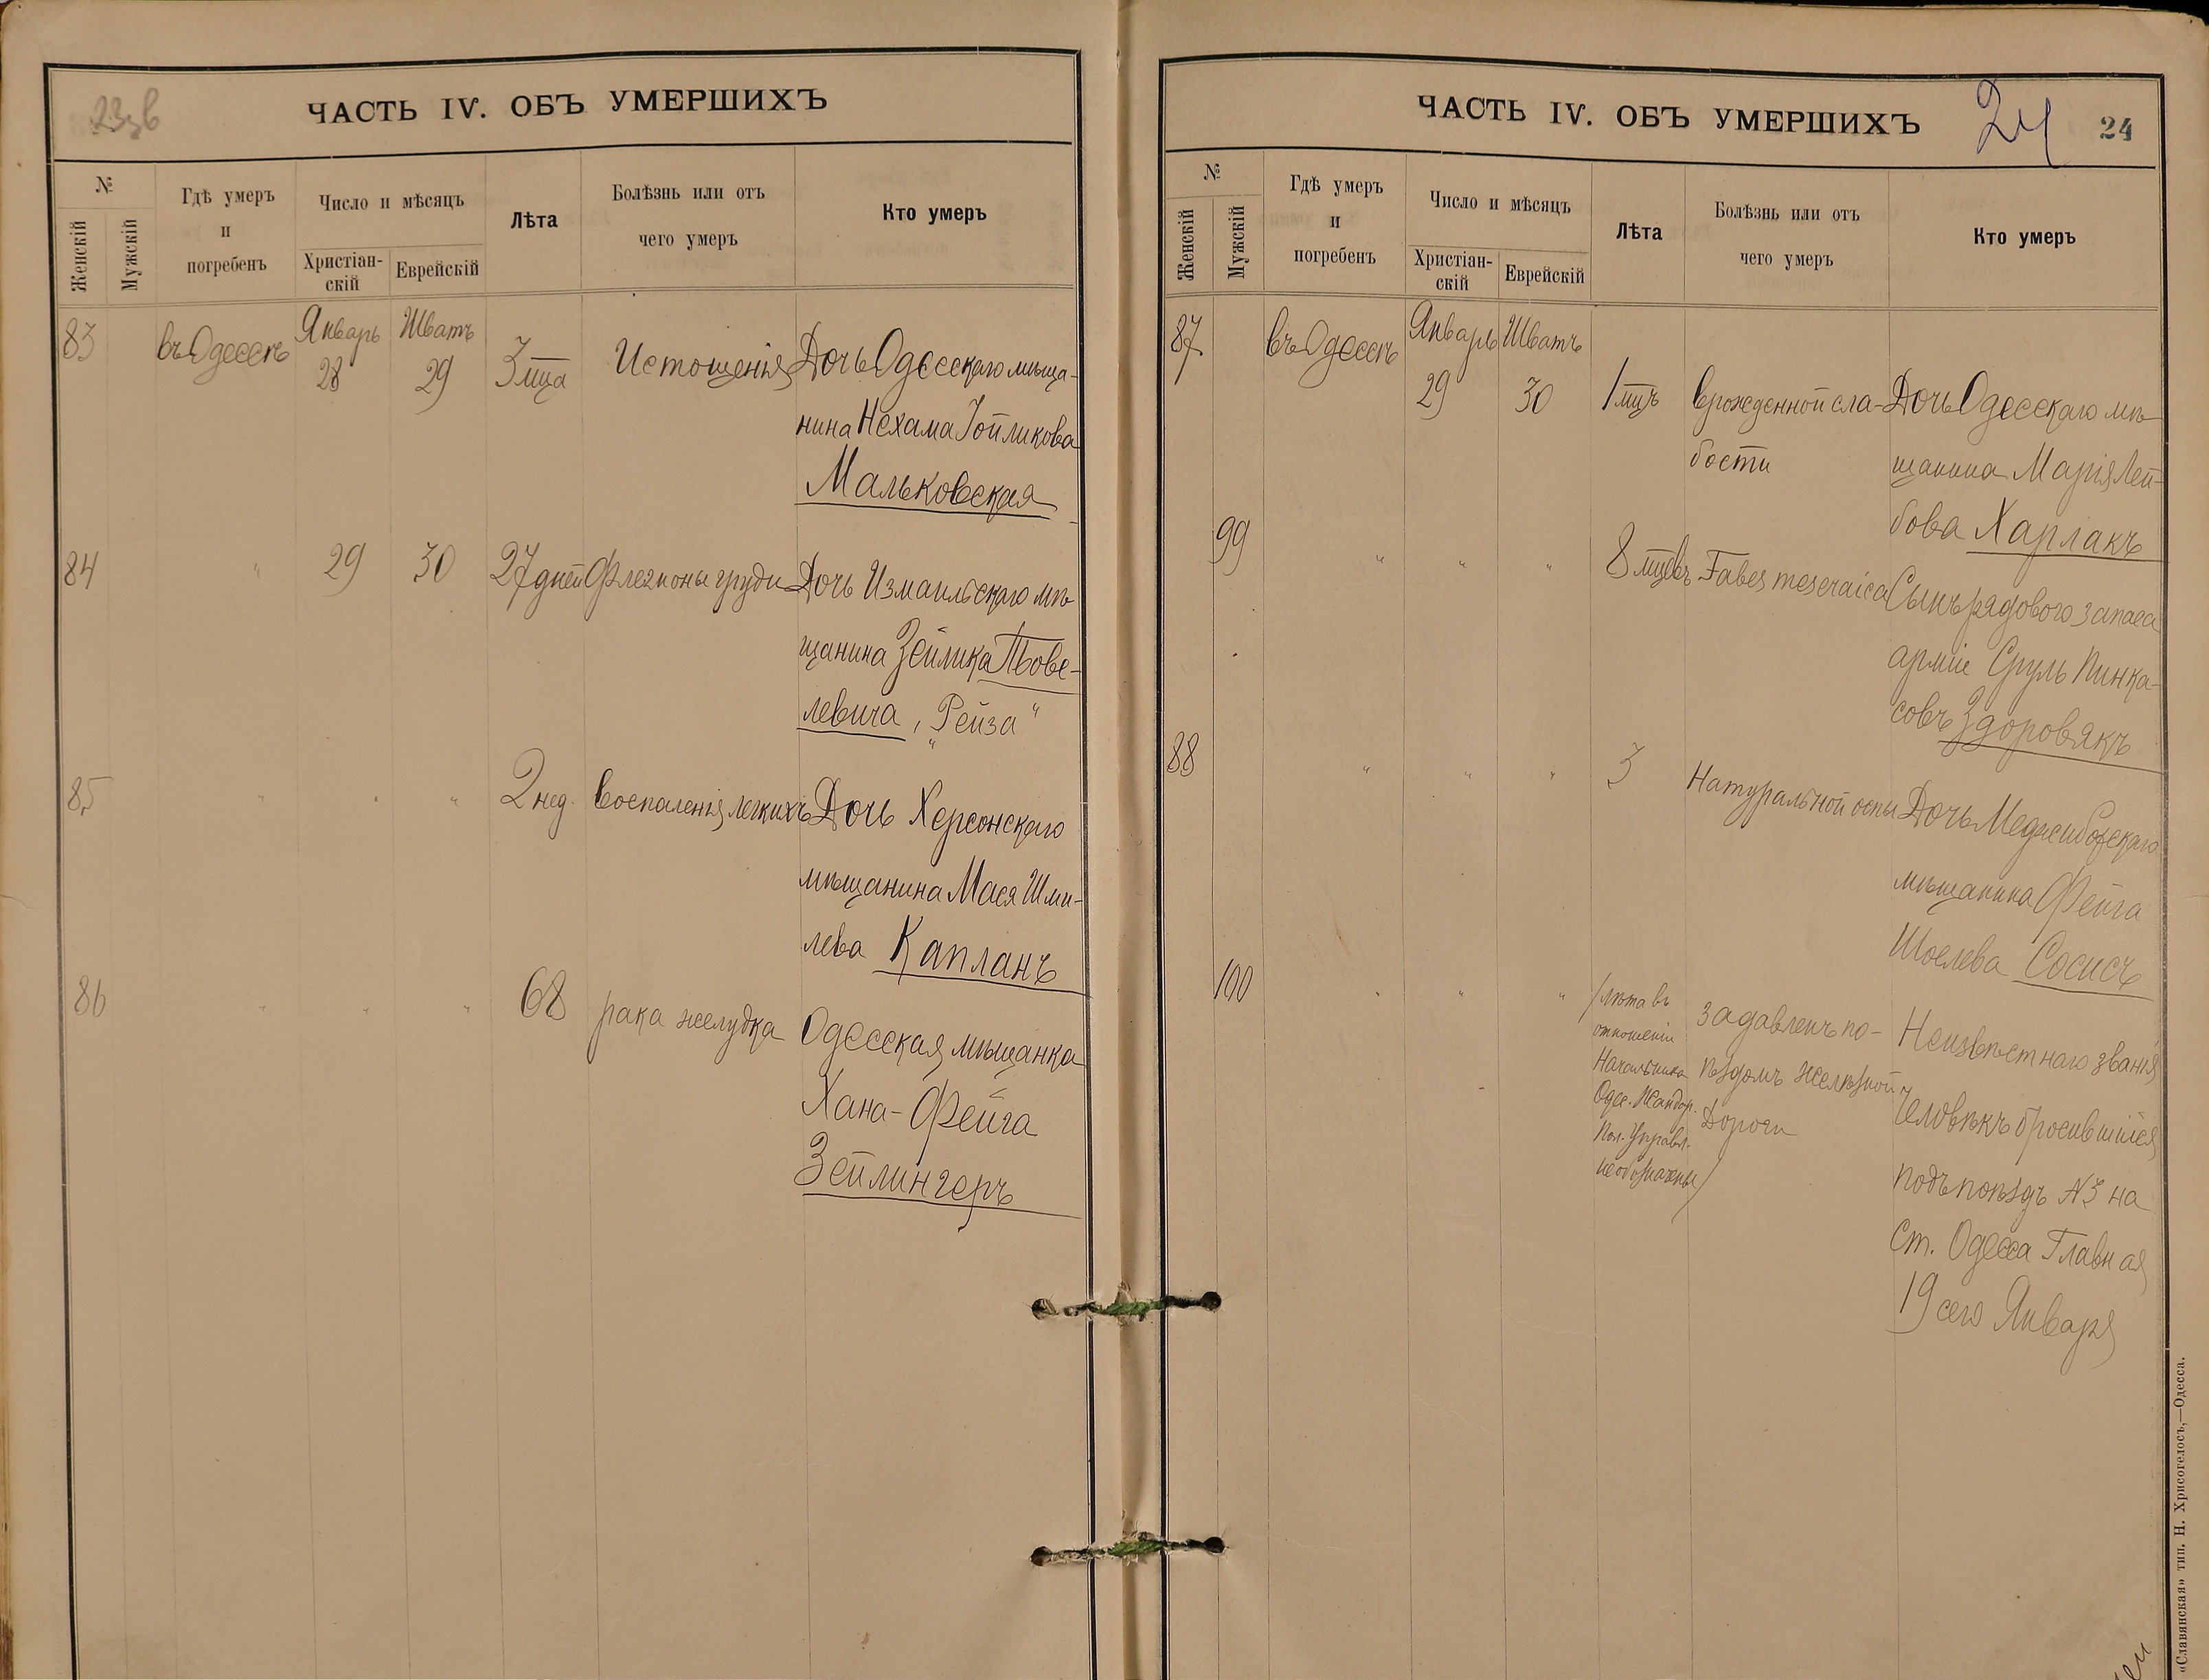 23 об
ЧАСТЬ IV. ОБЪ УМЕРШИХЪ
№
Женскій
Мужскій
Гдѣ умеръ
и
погребенъ
Число и мѣсяцъ
Христіан-
скій
Еврейскій
Лѣта
Болѣзнь или отъ
чего умеръ
Кто умеръ
83 въ Одессѣ Январь 28 Шватъ 29 3 мца Истощенія Дочь Одесскаго мѣща-
нина Нехама Іойликова
Мальковская
84 " 29 30 27 дней Флегмоны груди Дочь Измаильскаго мѣ-
щанина Зейлика
левича, "Рейза"
85 " " " 2 нед. Воспаленія легкихъ Дочь Херсонскаго
мѣщанина Мася Шми-
лева Капланъ
86 " " " 68 рака желудка Одесская мѣщанка
Хана-Фейга
Зейлингеръ
ЧАСТЬ IV. ОБЪ УМЕРШИХЪ
24
24
№
Женскій
Мужскій
Гдѣ умеръ
и
погребенъ
Число и мѣсяцъ
Христіан-
скій
Еврейскій
Лѣта
Болѣзнь или отъ
чего умеръ
Кто умеръ
87 въ Одессѣ Январь 29 Шватъ 30 1 мцъ врожденной сла-
бости
Дочь Одесскаго мѣ-
щанина Марія Лей-
бова Харлакъ
99 " " " 8 мцевъ Tabes meseraica Сынъ рядового запаса
арміи Сруль Пинка-
совъ Здоровякъ
88 " " " 3 Натуральной оспы Дочь Меджибожскаго
мѣщанина Фейга
Шоелева Сосисъ
100 " " "
/лѣта въ
отношеніи
Начальника
Одес. Жандар.
Пол. Управл.
необозначены/
задавленъ по-
ѣздомъ желѣзной
Дороги
Неизвѣстнаго званія
человѣкъ бросившійся
подъ поѣздъ №3 на
Ст. Одесса Главная
19 сего Января
«Славянская» тип. Н. Хрисогелосъ,—Одесса.